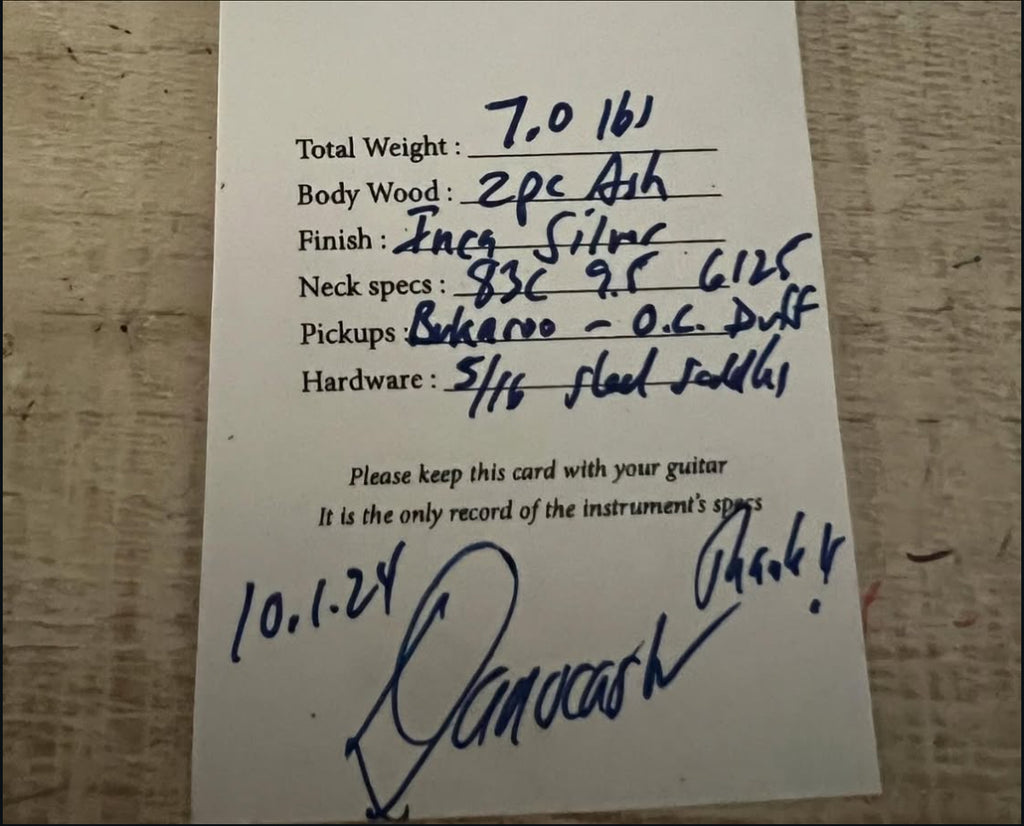 Total Weight : 7.0 lbs
Body Wood : 2pc Ash
Finish : Inca Silver
Neck specs : 83C 9.5 6125
Pickups : Bukaroo - O.C. Duff
Hardware : 5/16 steel saddles
Please keep this card with your guitar
It is the only record of the instrument's specs
Thanks!
10.1.24
Danocash